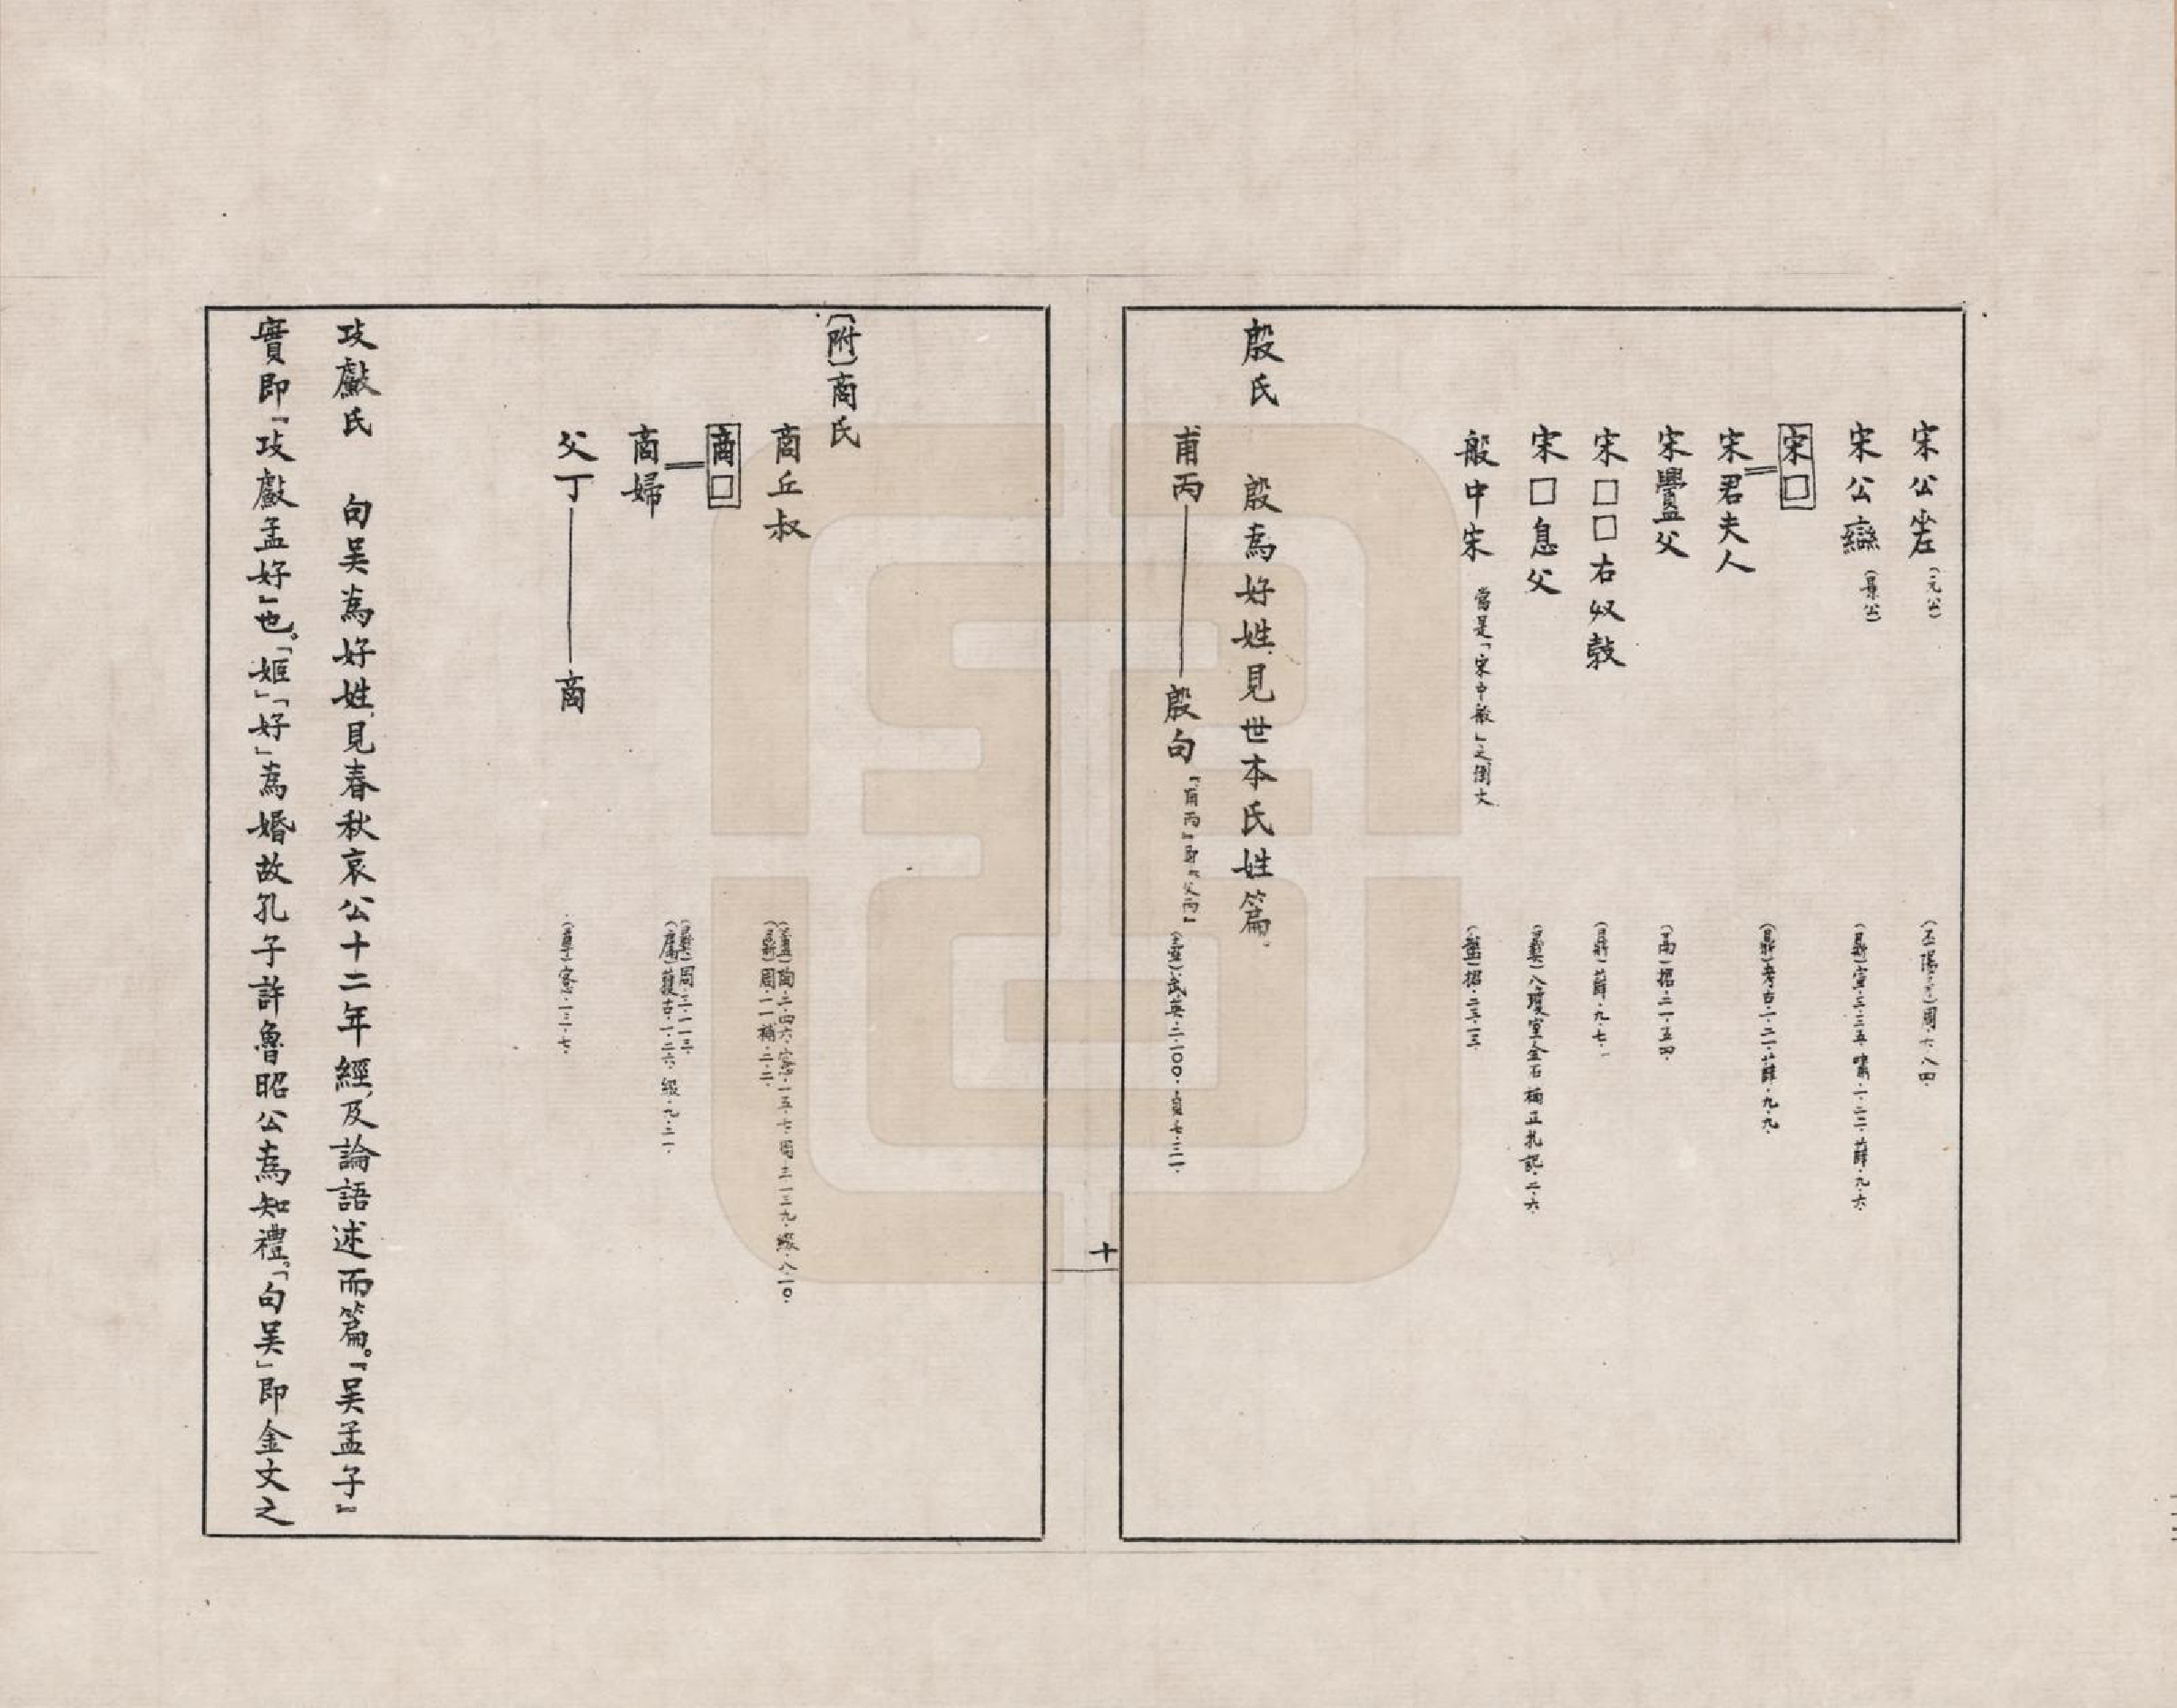 宋公差（元公）　（不陽‧戈）周‧六‧八四‧
宋公䜌（景公）　（鼎）宣‧三‧三五‧嘯‧一‧二二‧薛‧九‧六‧
宋□
宋君夫人　（鼎）考古‧一‧二一‧薛‧九‧九‧
宋舋父　（鬲）捃‧二一‧五四‧
宋□□右奴敄　（鼎）薛‧九‧七‧
宋□息父　（彝）八瓊室金石補正札記‧二‧六‧
般中宋　當是「宋中般」之倒文　（盤）捃‧二三‧一三‧
殷氏　殷為好姓，見世本氏姓篇。
甫丙——殷句　「甫丙」即「父丙」　（壺）武英‧二‧一〇〇‧貞‧七‧三一‧
十
〔附〕商氏
商丘叔　（簠）陶‧二‧四六‧窓‧一五‧七‧周‧三‧一三九‧綴‧八‧一〇‧
（鼎）周‧二‧補‧二‧二‧
商□
商婦　（彝）周‧三‧一一三‧
（甗）菠古‧一‧二六‧綴‧九‧二一‧
父丁——商　（尊）窓‧一三‧七‧
攻㱃氏　句吴為好姓，見春秋哀公十二年經，及論語述而篇。「吴孟子」
實即「攻㱃孟好」也。「姬」「好」為婚故孔子許魯昭公為知禮。「句吴」即金文之